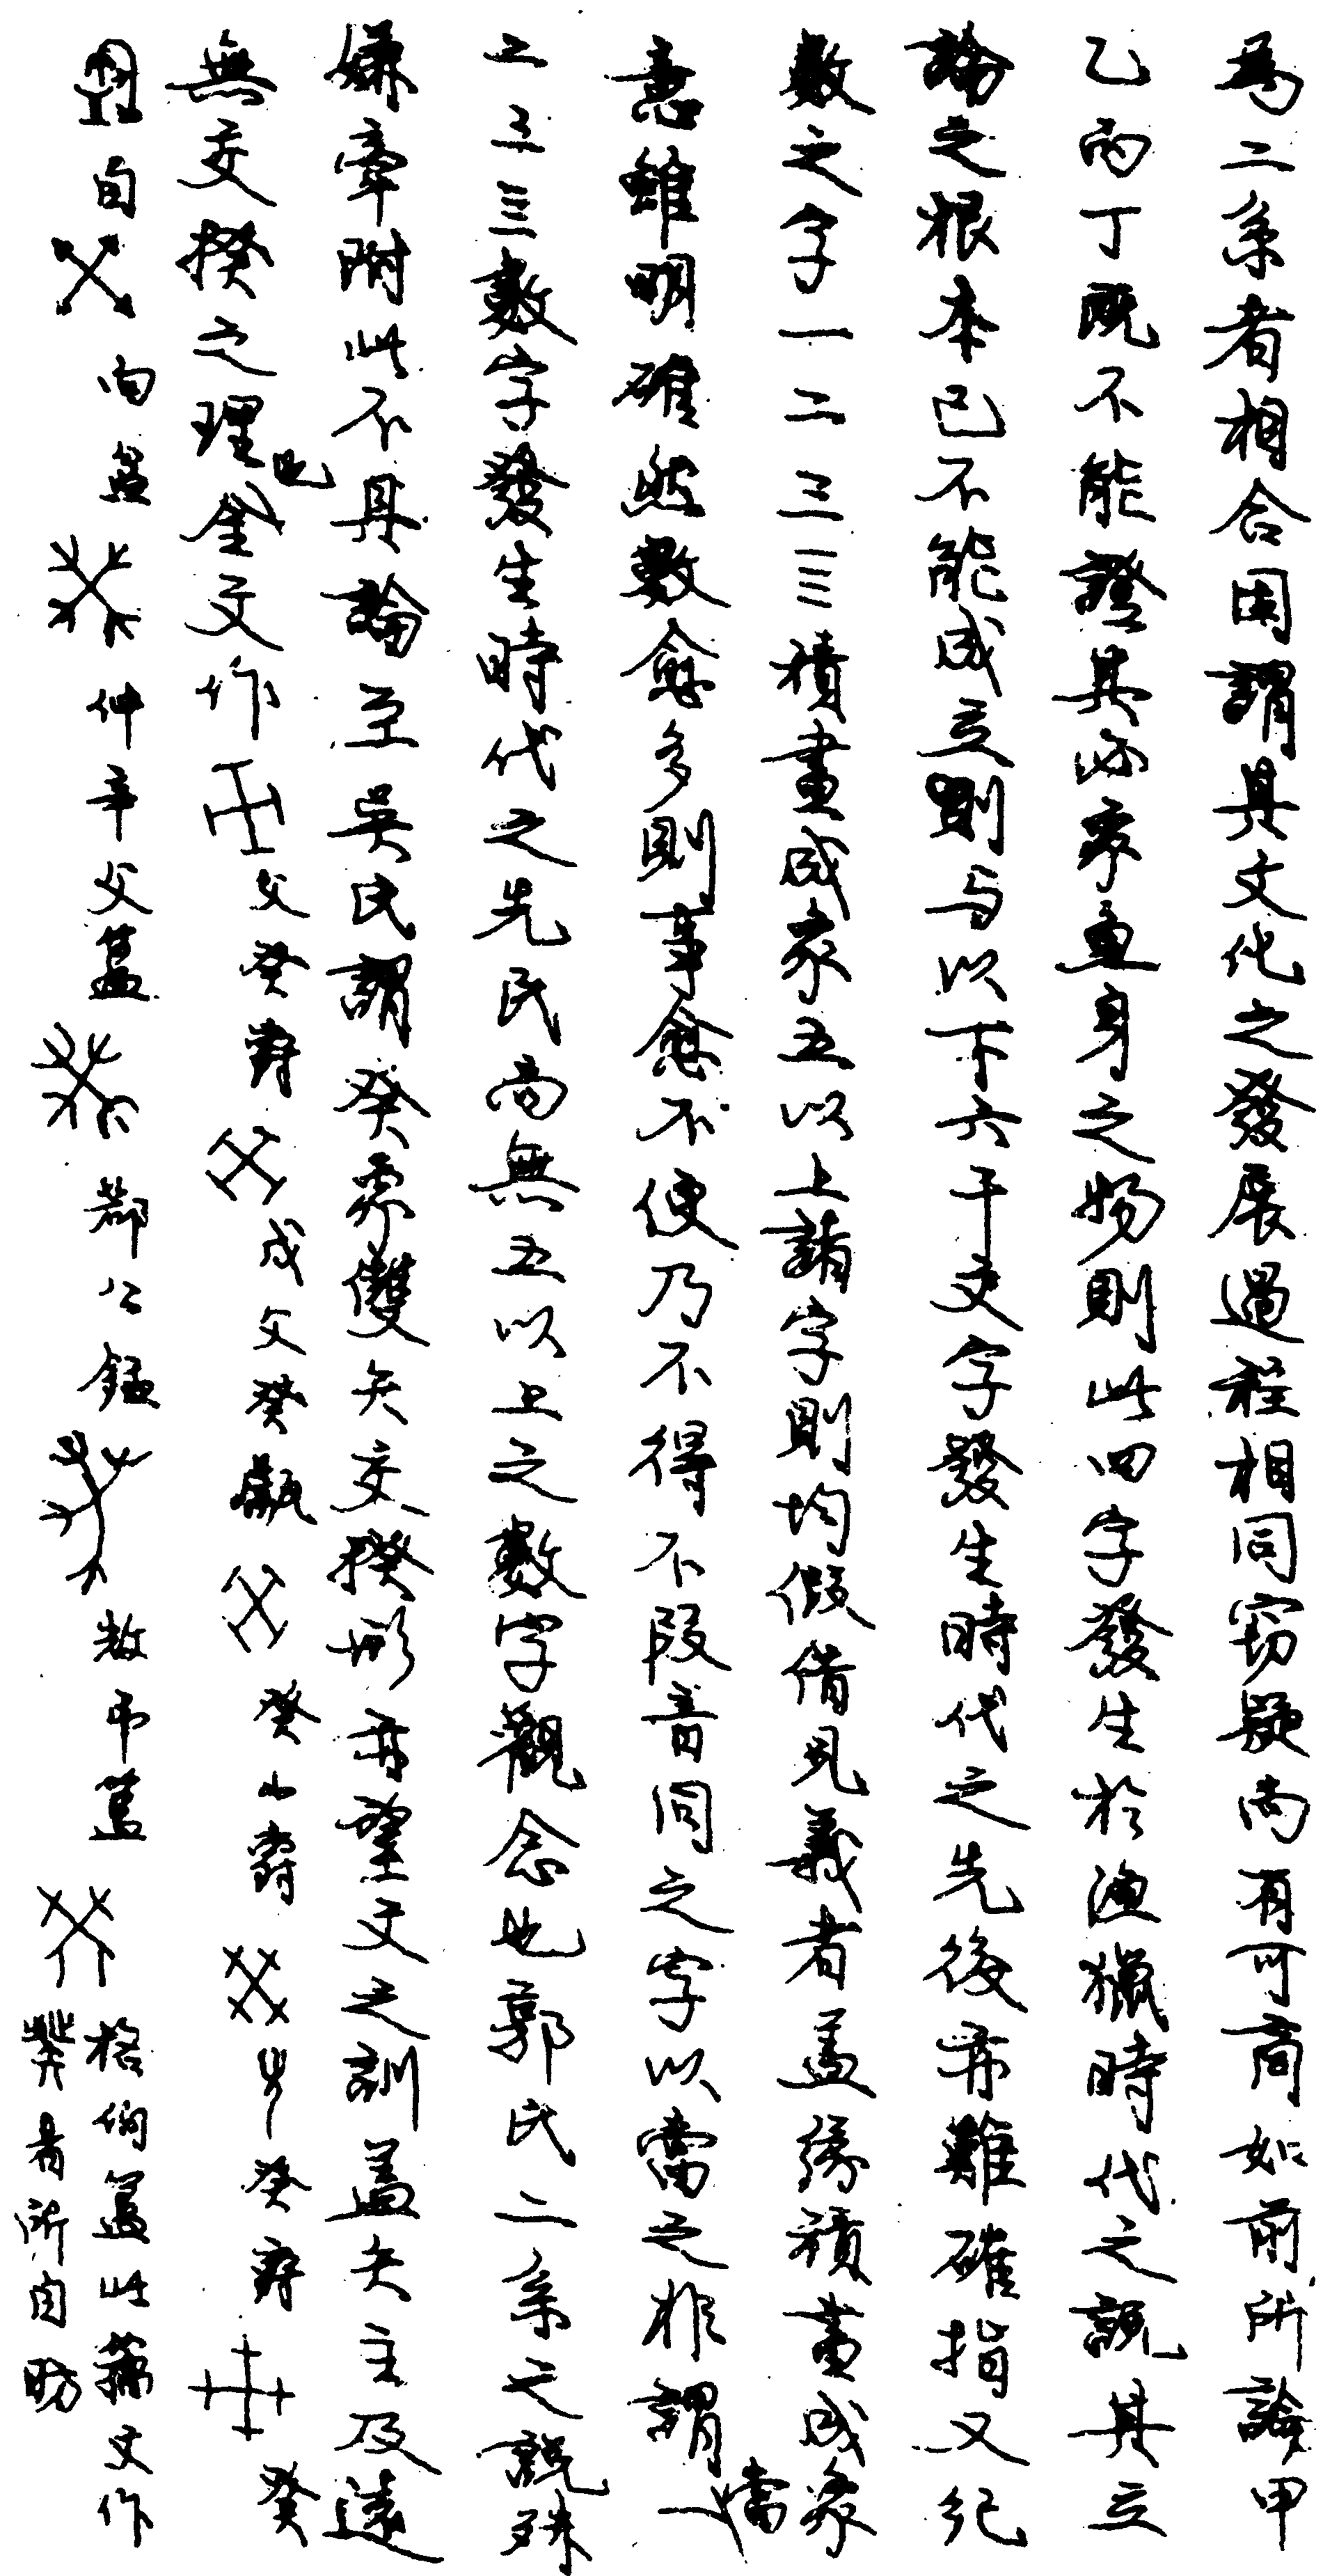 為二系者相合因謂其文化之發展過程相同竊疑尚有可商如前所論甲
乙丙丁既不能證其必象魚身之物則此四字發生於漁獵時代之說其立
論之根本已不能成立則与以下六干文字發生時代之先後亦難確指又紀
數之字一二三亖積畫成象五以上諸字則均假借見義者蓋緣積畫成象
意雖明確然數愈多則事愈不便乃不得不叚音同之字以當之非謂當一
二三亖數字發生時代之先民尚無五以上之數字觀念也郭氏二系之說殊
嫌牽附此不具論至吳氏謂癸象雙矢交揆形亦望文之訓蓋矢主及遠
無交揆之理也金文作 父癸爵 戍父癸甗 癸山爵 癸爵 癸
卣 向簋 仲辛父簋 鄀公錳 敖弔簋 格伯簋此籀文作
者所自昉